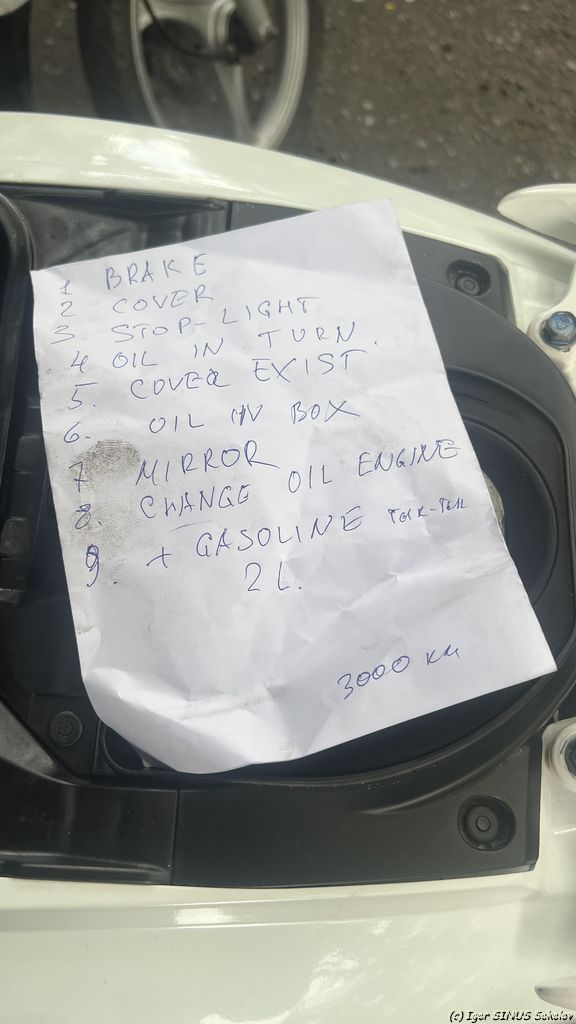 1 BRAKE
2 COVER
3. STOP-LIGHT
4 OIL IN TURN.
5. COVER EXIST
6. OIL IN BOX
7 MIRROR
8. CHANGE OIL ENGINE
9. + GASOLINE тик-так
2 L.
3000 км
(c) Igor SINUS Sokolov